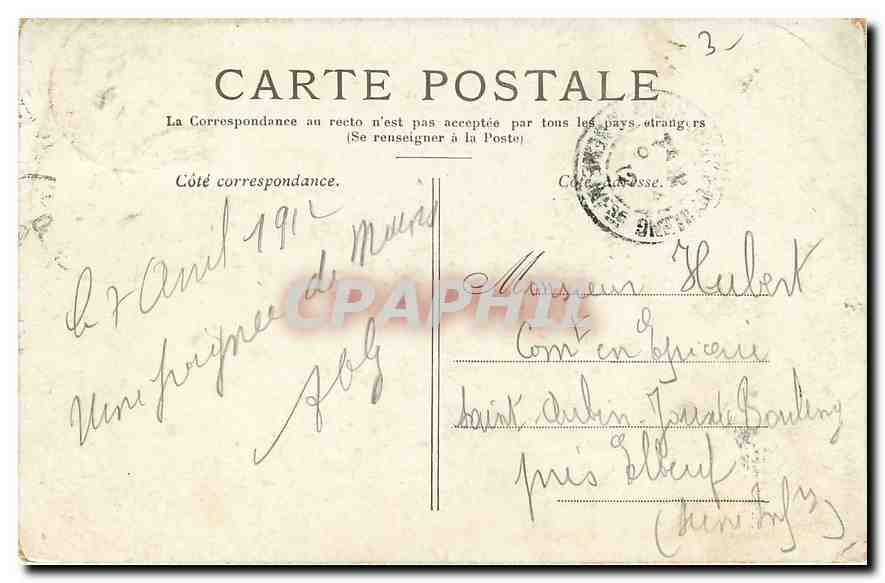 3-
CARTE POSTALE
La Correspondance au recto n'est pas acceptée par tous les pays étrangers
(Se renseigner à la Poste)
Côté correspondance.
Côté adresse.
le 7 Avril 1912
Une poignée de mains
CPAPHIL
Monsieur Hubert
Comt en Epicerie
Saint-Aubin-Jouxte-Boulleng
près Elbeuf
(Seine Infre)